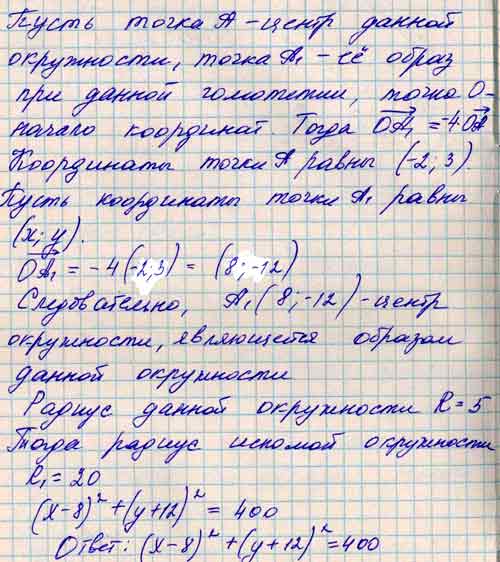 Пусть точка А - центр данной
окружности, точка А₁ - её образ
при данной гомотетии, точка О-
начало координат. Тогда OA₁ = -4OA
Координаты точки А равны (-2; 3).
Пусть координаты точки А₁ равны
(x; y).
OA₁ = -4(-2;3) = (8;-12)
Следовательно, А₁(8;-12) - центр
окружности, являющейся образом
данной окружности
Радиус данной окружности R = 5
Тогда радиус искомой окружности
R₁ = 20
(x-8)² + (y+12)² = 400
Ответ: (x-8)² + (y+12)² = 400